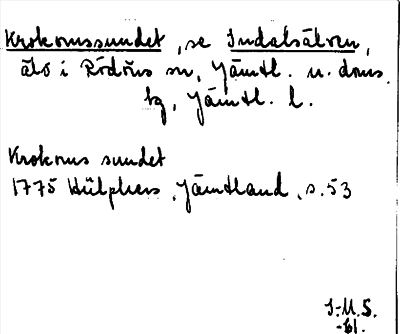 Krokomssundet, se Indalsälven,
älv i Rödöns sn, Jämtl. n. doms.
hg, Jämtl. l.
Krokoms sundet
1775 Hülphers, Jämtland, s. 53
I-M.S.
-61.